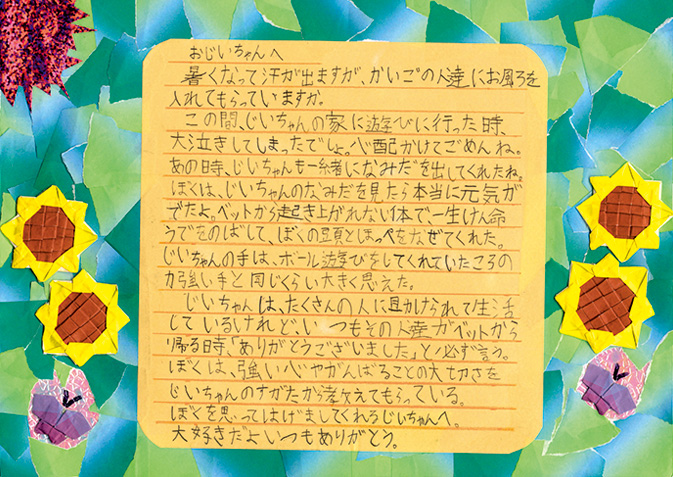 おじいちゃんへ
暑くなって汗が出ますが、かいごの人達にお風ろを
入れてもらっていますか。
この間、じいちゃんの家に遊びに行った時、
大泣きしてしまったでしょ。心配かけてごめんね。
あの時、じいちゃんも一緒になみだを出してくれたね。
ぼくは、じいちゃんのなみだを見たら本当に元気が
でたよ。ベットから起き上がれない体で一生けん命
うでをのばして、ぼくの頭とほっぺをなぜてくれた。
じいちゃんの手は、ボール遊びをしてくれていたころの
力強い手と同じくらい大きく思えた。
じいちゃんは、たくさんの人に助けられて生活
しているけれど、いつもその人達がベットから
帰る時、「ありがとうございました」と必ず言う。
ぼくは、強い心やがんばることの大切さを
じいちゃんのすがたから教えてもらっている。
ぼくを思ってはげましてくれるじいちゃんへ。
大好きだよいつもありがとう。